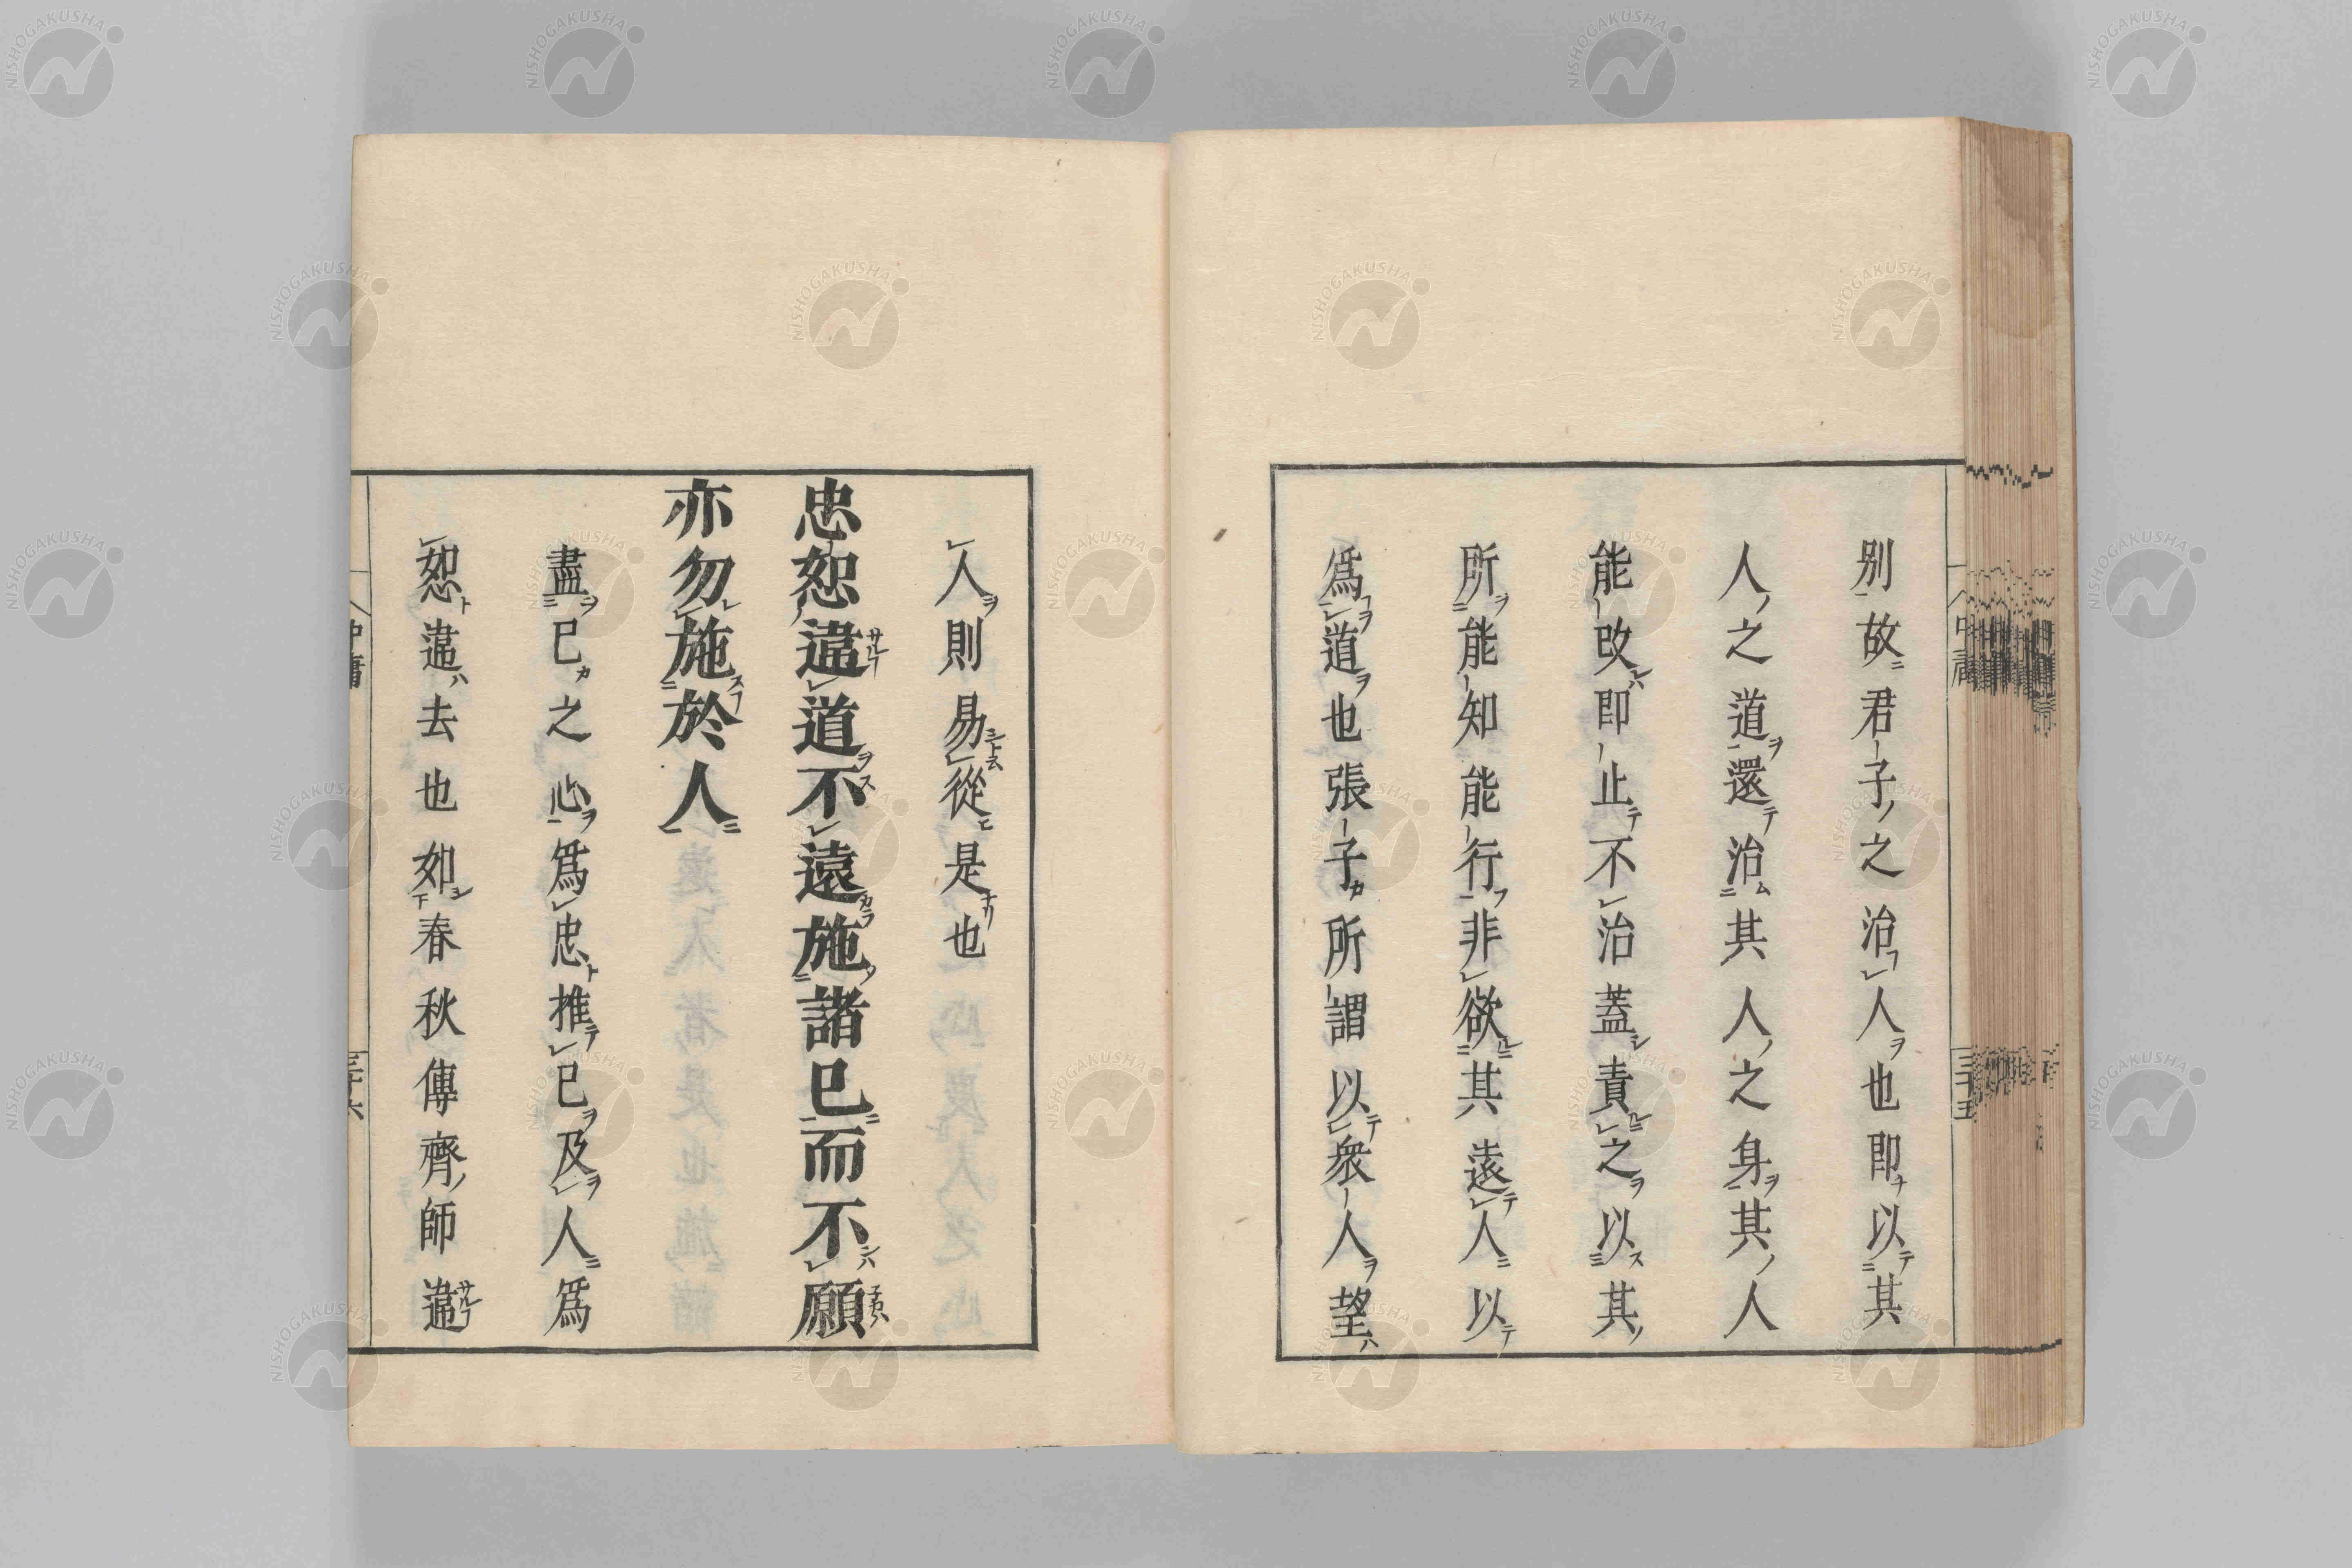 別故君子之治人也即以其
人之道還治其人之身其人
能改即止不治蓋責之以其
所能知能行非欲其遠人以
爲道也張子所謂以衆人望
人則易從是也
忠恕違道不遠施諸己而不願
亦勿施於人
盡己之心爲忠推己及人爲
恕違去也如春秋傳齊師違
中庸
三十五
中庸
三十六
NISHOGAKUSHA